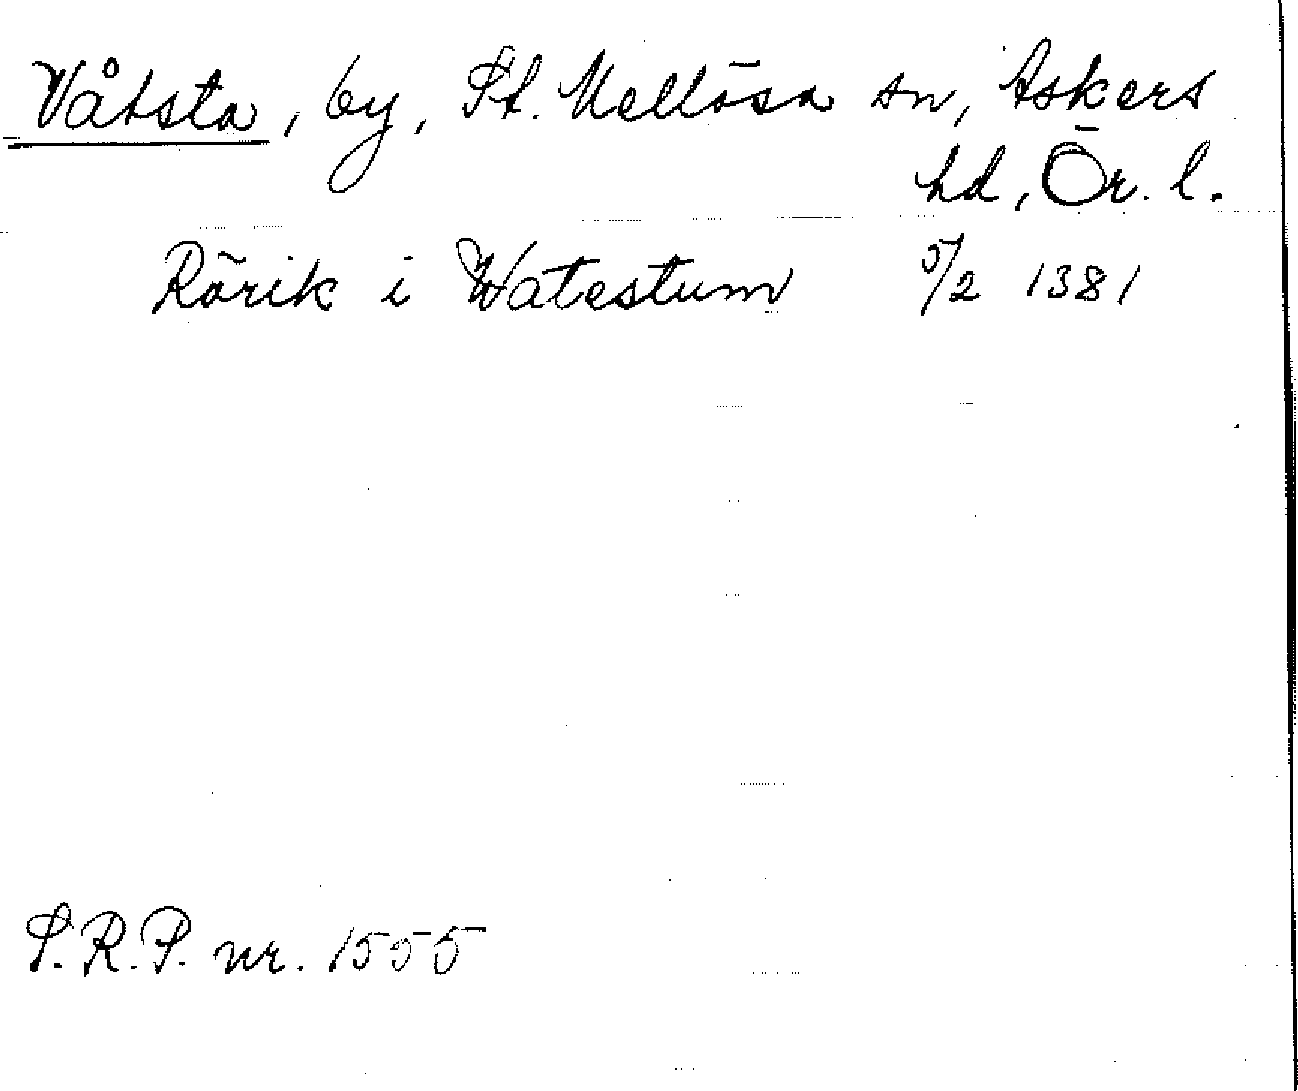 Våtsta, by, St. Mellösa sn, Askers
hd, Ör. l.
Rörik i Watestum 5/2 1381
S.R.P. nr. 1555